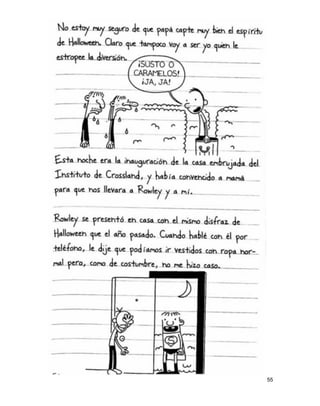 No estoy muy seguro de que papá capte muy bien el espíritu
de Halloween. Claro que tampoco voy a ser yo quien le
estropee la diversión.
¡SUSTO O
CARAMELOS!
¡JA, JA!
Esta noche era la inauguración de la casa embrujada del
Instituto de Crossland, y había convencido a mamá
para que nos llevara a Rowley y a mí.
Rowley se presentó en casa con el mismo disfraz de
Halloween que el año pasado. Cuando hablé con él por
teléfono, le dije que podíamos ir vestidos con ropa nor-
mal pero, como de costumbre, no me hizo caso.
S
55